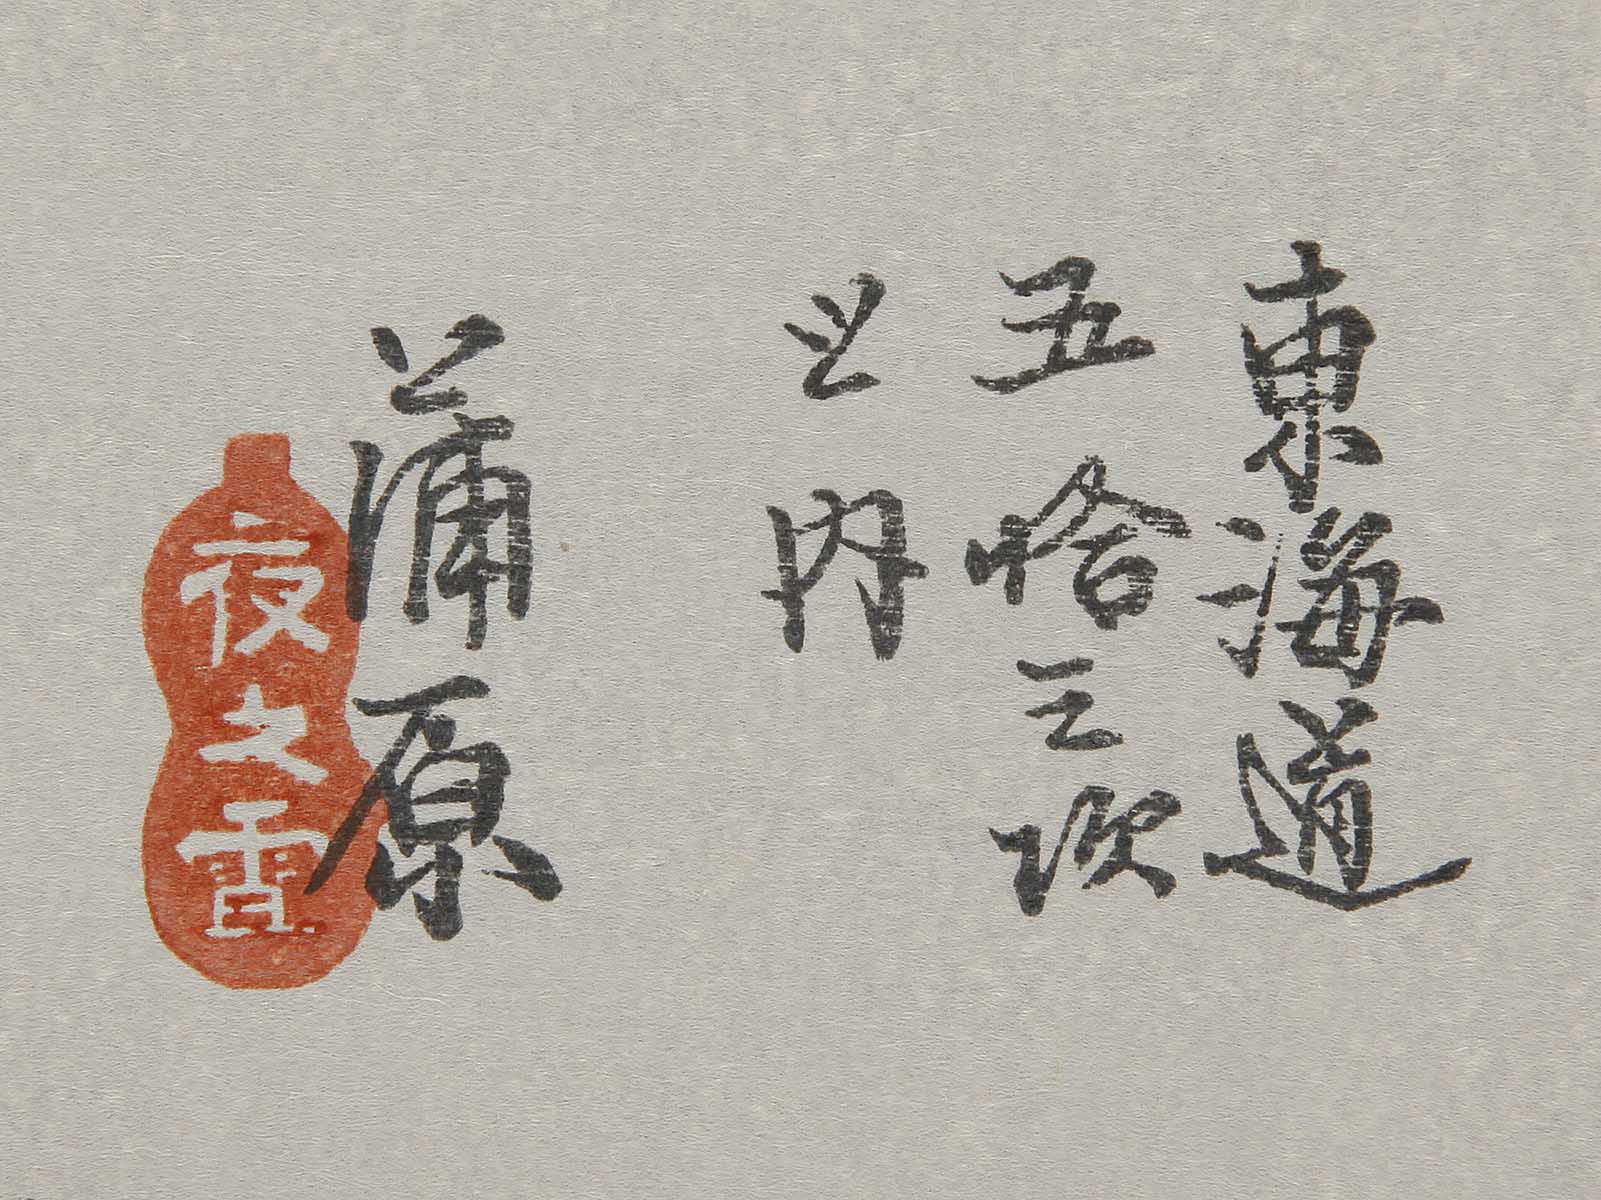 東海道
五拾三次
之内
蒲原
夜之雪